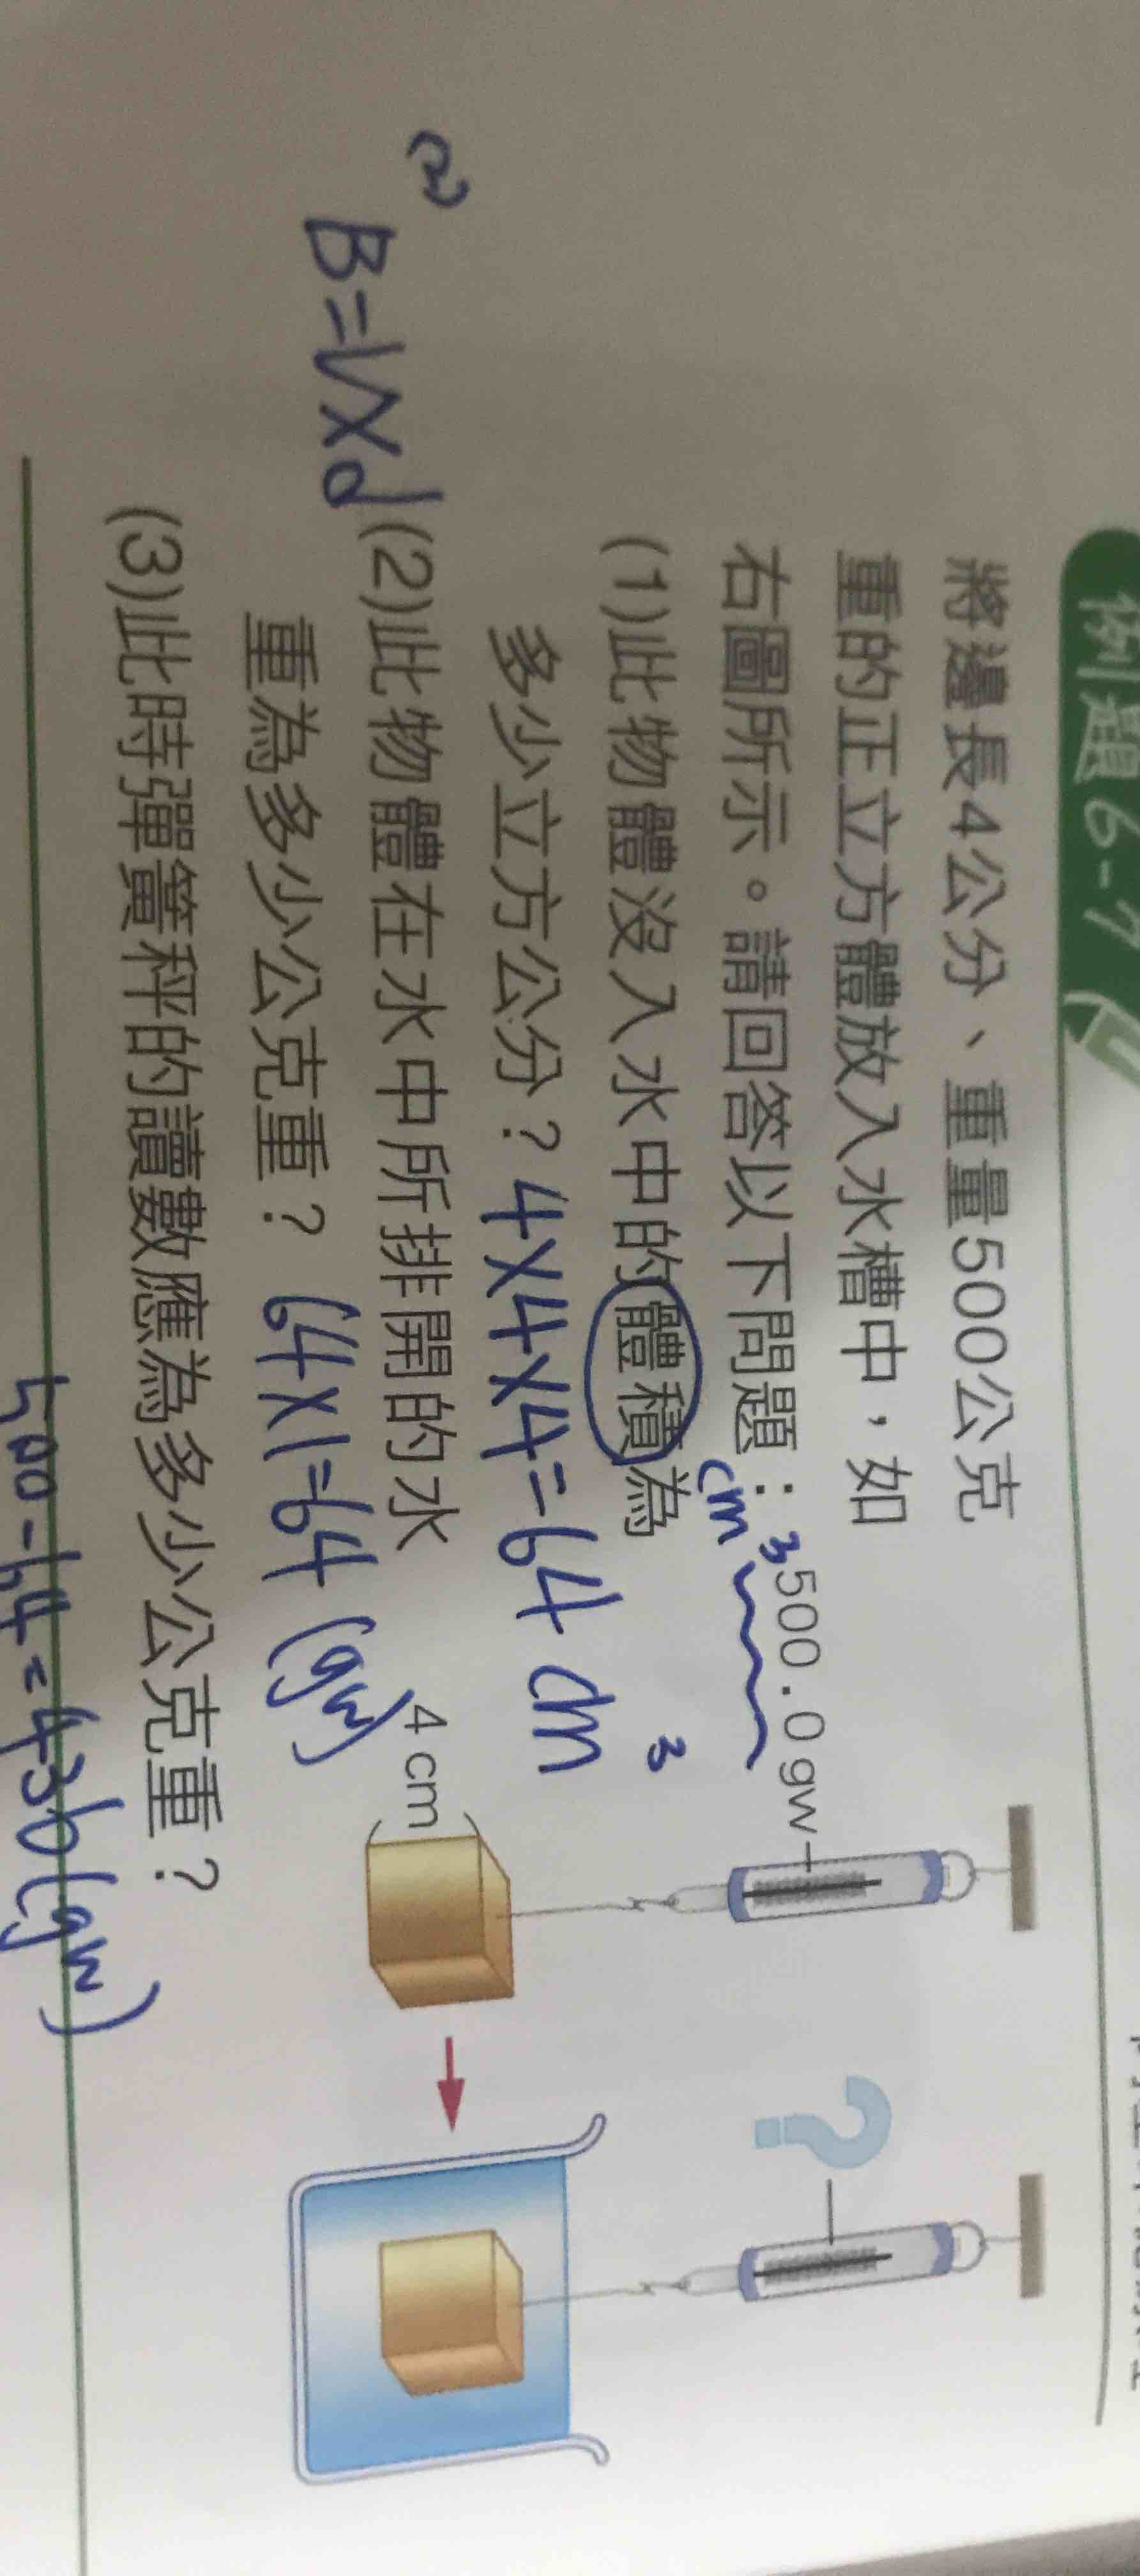 例題6-1
將邊長4公分、重量500公克
重的正立方體放入水槽中,如
右圖所示。請回答以下問題:
cm³
(1)此物體沒入水中的體積為
多少立方公分?4×4×4=64 cm³
(2)此物體在水中所排開的水
重為多少公克重?64×1=64(gw)
(3)此時彈簧秤的讀數應為多少公克重?
500-64=436(gw)
(2)
B=V×d
500.0 gw
4 cm
?